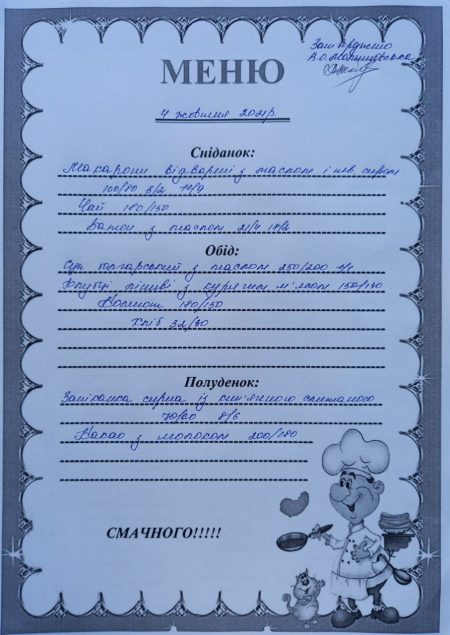 Затверджено
В.О.
МЕНЮ
4 жовтня 2021р.
Сніданок:
Макарони відварені з маслом і тв. сиром
100/80 3/2 10/9
Чай 180/150
Батон з маслом 21/4 18/2
Обід:
Суп болгарський з маслом 250/200
ліниві з курячим м'ясом 150/130
Компот 180/150
Хліб 32/30
Полуденок:
Запіканка сирна із кип'яченою сметаною
70/60 8/6
Какао з молоком 200/180
СМАЧНОГО!!!!!